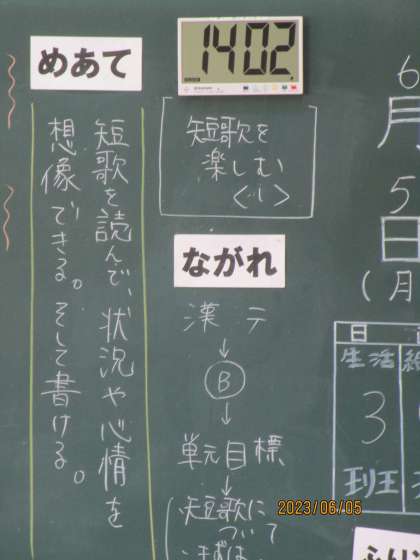 6
月
5
日
(月
日
生活
3
班
1402
短歌を
楽しむ
めあて
短歌を読んで、状況や心情を
想像できる。そして書ける。
ながれ
漢テ
↓
B
↓
単元目標
↓
短歌に
ついて
2023/06/05